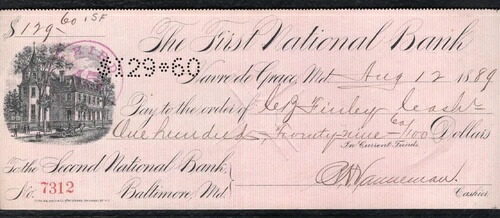 $129 60
$129*60
The First National Bank
Havre de Grace, Md. Aug 12 1889
Pay to the order of C J Finley Cash'r
One hundred, Twenty-nine 60/100 Dollars
In Current Funds.
To the Second National Bank,
Baltimore, Md.
No. 7312
Cashier.